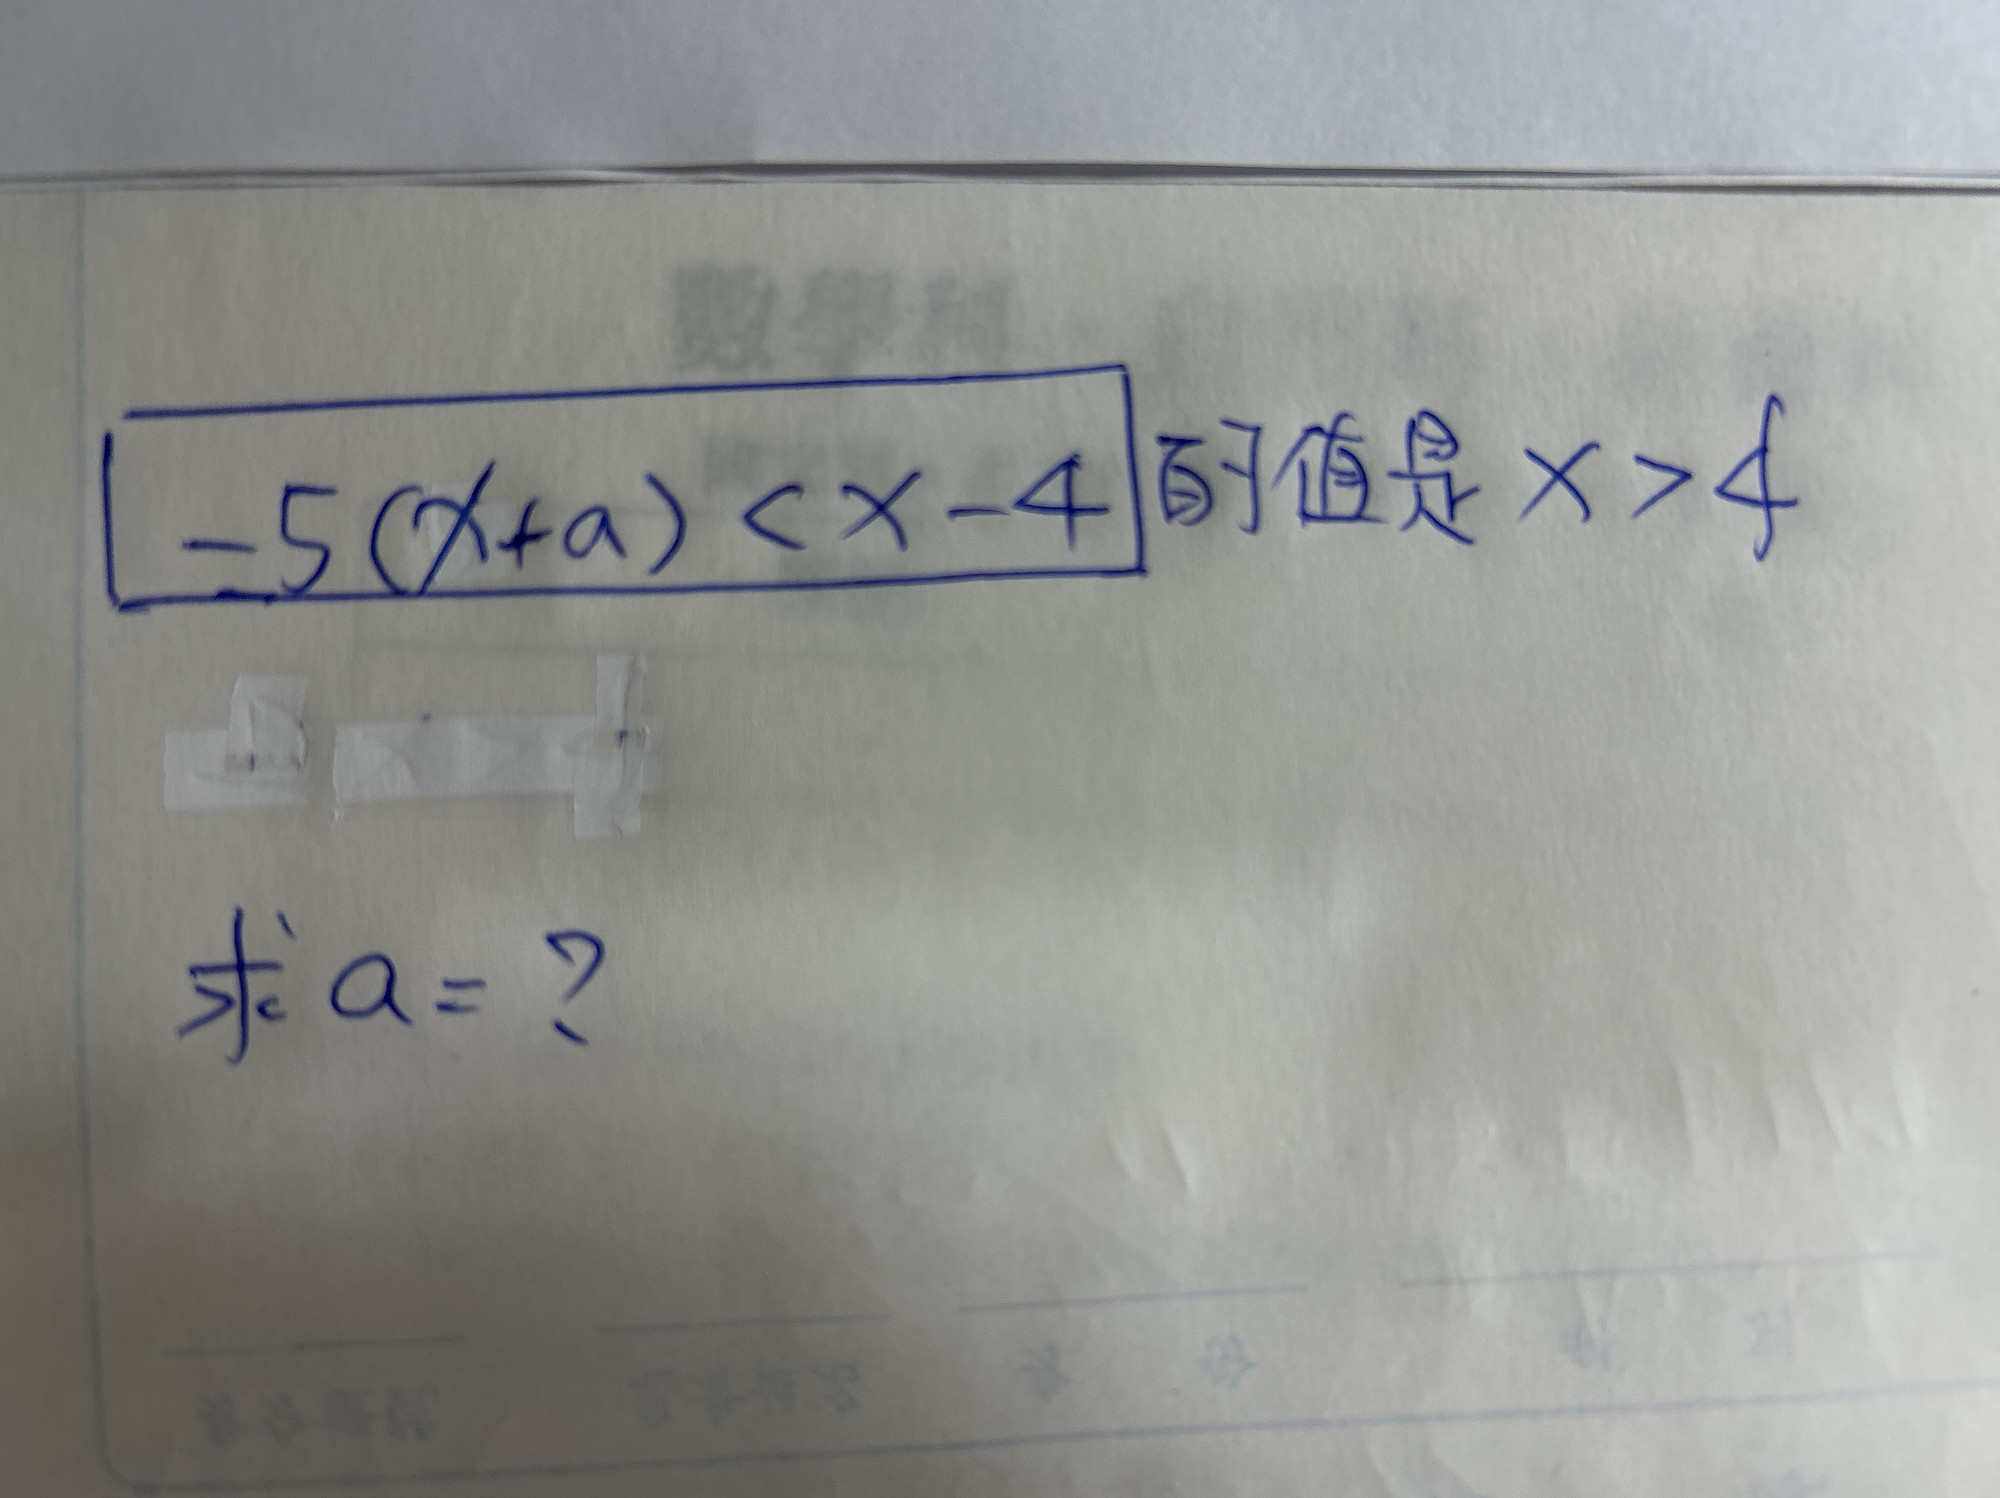 -5(x+a)<x-4的值是x>4
求a=?